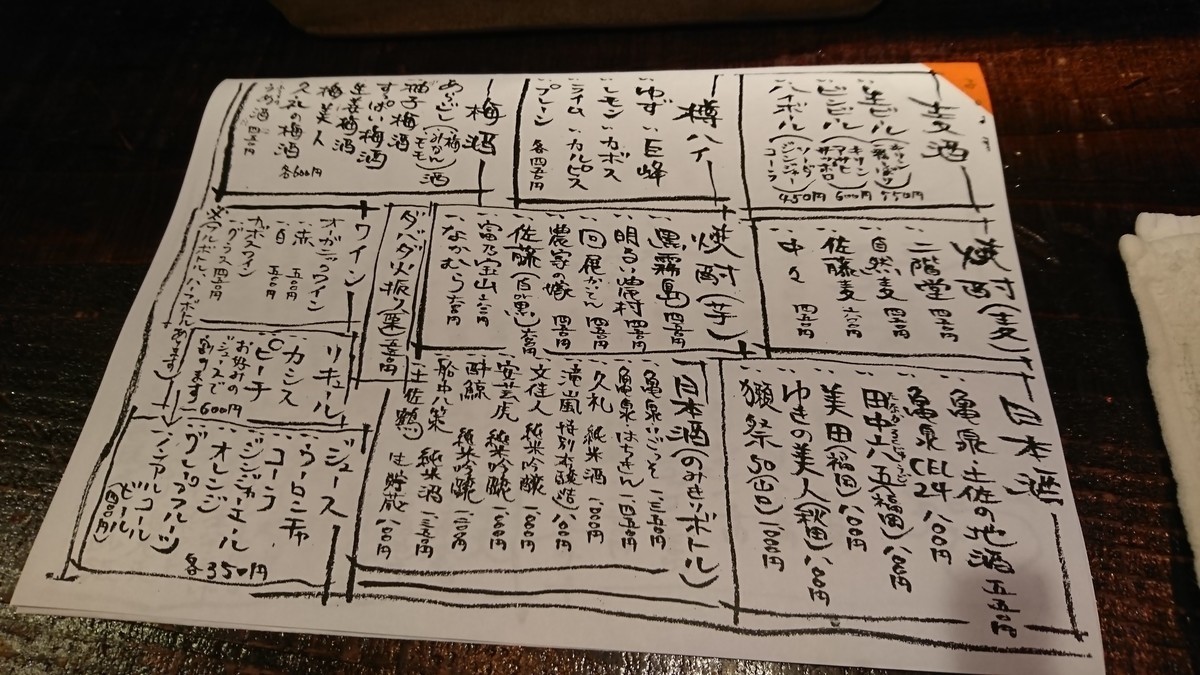 麦酒
生ビール(キリン一番しぼり) 五五〇円
ビンビール(キリン アサヒ サッポロ) 600円
ハイボール(ソーダ ジンジャー コーラ) 450円
樽ハイ
ゆず 巨峰
レモン カボス
ライム カルピス
プレーン 各四五〇円
梅酒
(梅 みかん モモ)酒
柚子梅酒
すっぱい梅酒
生姜梅酒
梅美人
久礼の梅酒
各600円
焼酎(麦)
二階堂 四五〇円
自然麦 四五〇円
佐藤麦 六〇〇円
中々 四五〇円
焼酎(芋)
黒霧島 四五〇円
明るい農村 四五〇円
農家の嫁 四五〇円
佐藤(白 黒) 六〇〇円
富乃宝山 六〇〇円
なかむら 六〇〇円
ダバダ火振り(栗) 五五〇円
ワイン
オーガニックワイン
赤 五〇〇円
白 五〇〇円
カボスワイン
グラス 四五〇円
※フルボトル、ハーフボトルあります
日本酒
亀泉 土佐の地酒 五五〇円
亀泉CEL24 八〇〇円
田中六五(福岡) 八〇〇円
美田(福岡) 八〇〇円
ゆきの美人(秋田) 八〇〇円
獺祭50(山口) 一、〇〇〇円
日本酒(のみきりボトル)
亀泉いごっそ 一、三五〇円
亀泉はちきん 一、四五〇円
久礼 純米酒
滝嵐 特別本醸造
文佳人 純米吟醸
安芸虎 純米吟醸
酔鯨 純米吟醸
船中八策 純米酒 一、三五〇円
土佐鶴 生貯蔵
リキュール
カシス
ピーチ
お好みの
ジュースで
割ります
600円
ジュース
ウーロン茶
コーラ
ジンジャエール
オレンジ
グレープフルーツ
各350円
ノンアルコール
ビール
(四〇〇円)